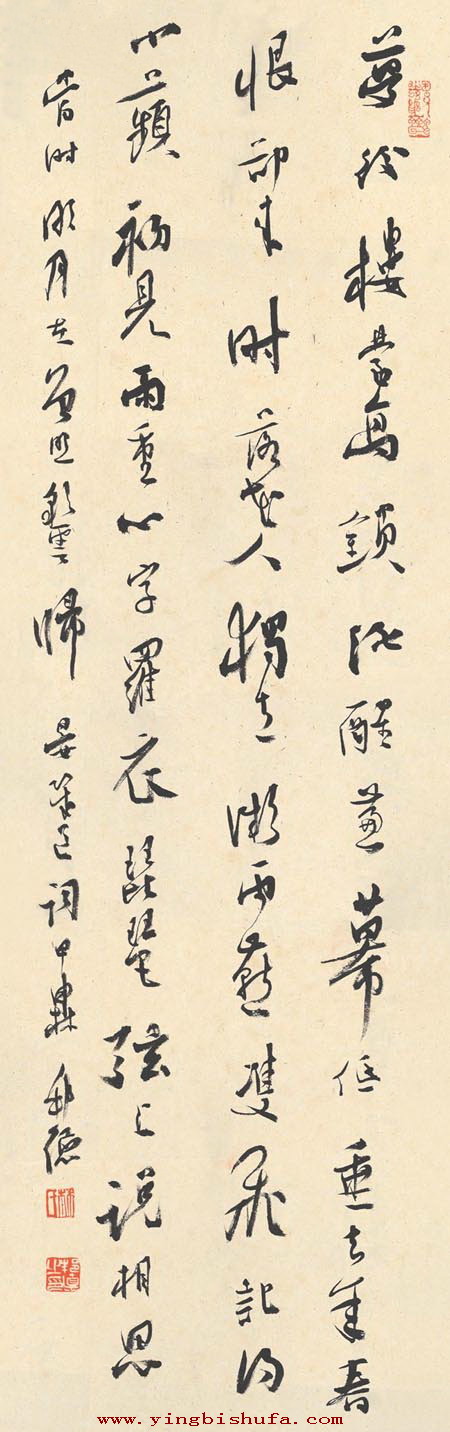 夢後樓臺高鎖酒醒簾幕低垂去年春
恨却來时落花人獨立微雨燕雙飛記得
小蘋初見兩重心字羅衣琵琶弦上說相思
當时明月在曾照彩雲歸 晏幾道詞
www.yingbishufa.com